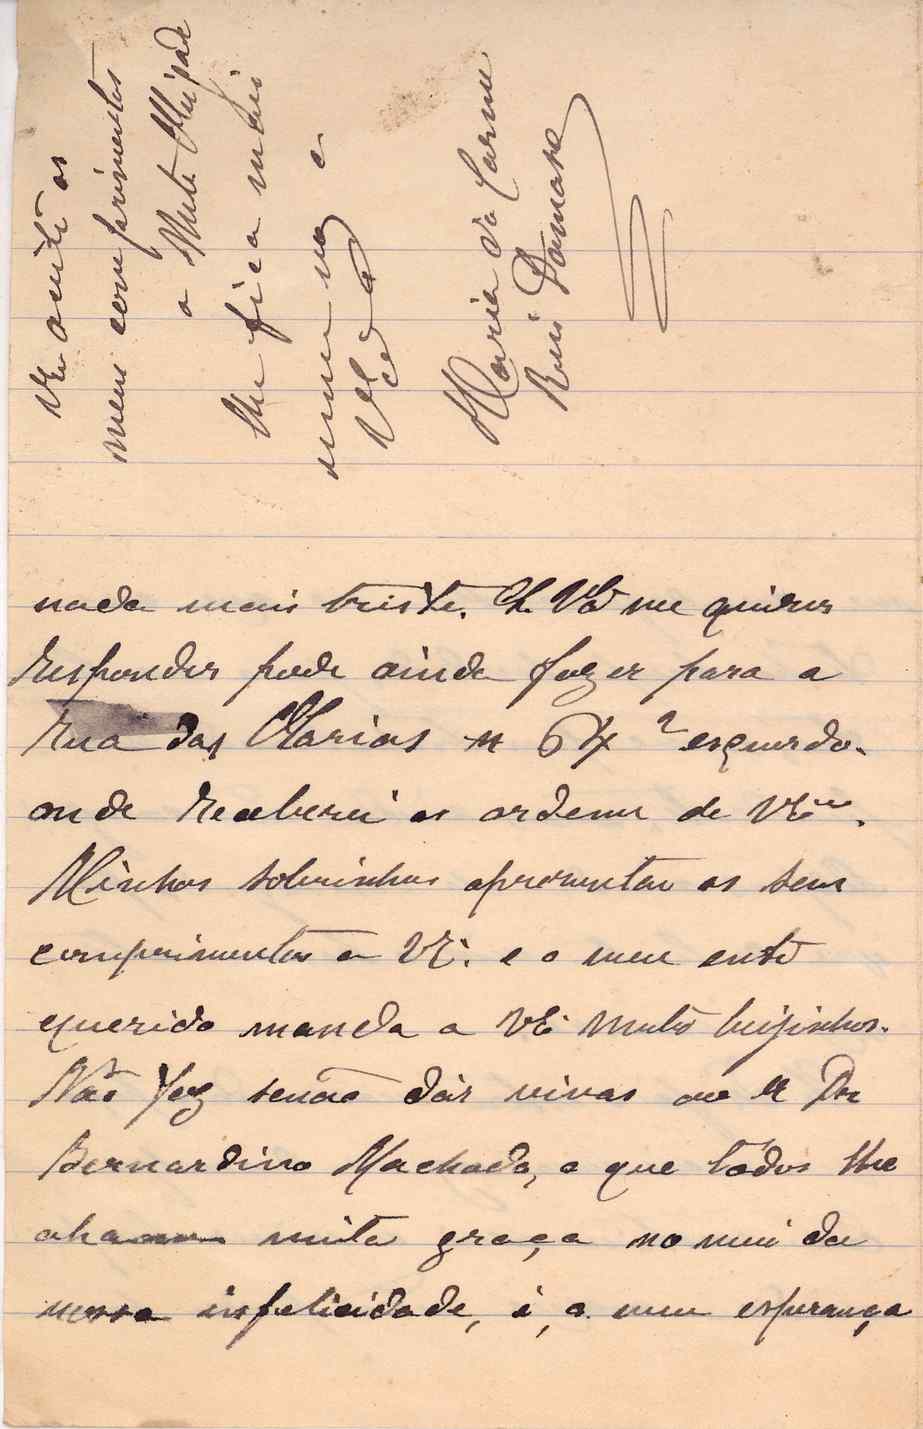 nada mais triste. Se VEª me quizer
responder pode ainda fazer para a
Rua das Olarias nº 64 2º esquerdo.
onde receberei as ordens de VEª.
Minhas sobrinhas apresentam os seus
comprimentos a VEª. e o meu neto
querido manda a VEª muitos beijinhos.
Não fez senão dár vivas ao Sr Dr
Bernardino Machado, o que todos lhe
acham muita graça no meio da
nossa infelicidade, é, a minha esperança
VEª aceite os
meus comprimentos
a
fica mais
uma vez
Maria do Carmo